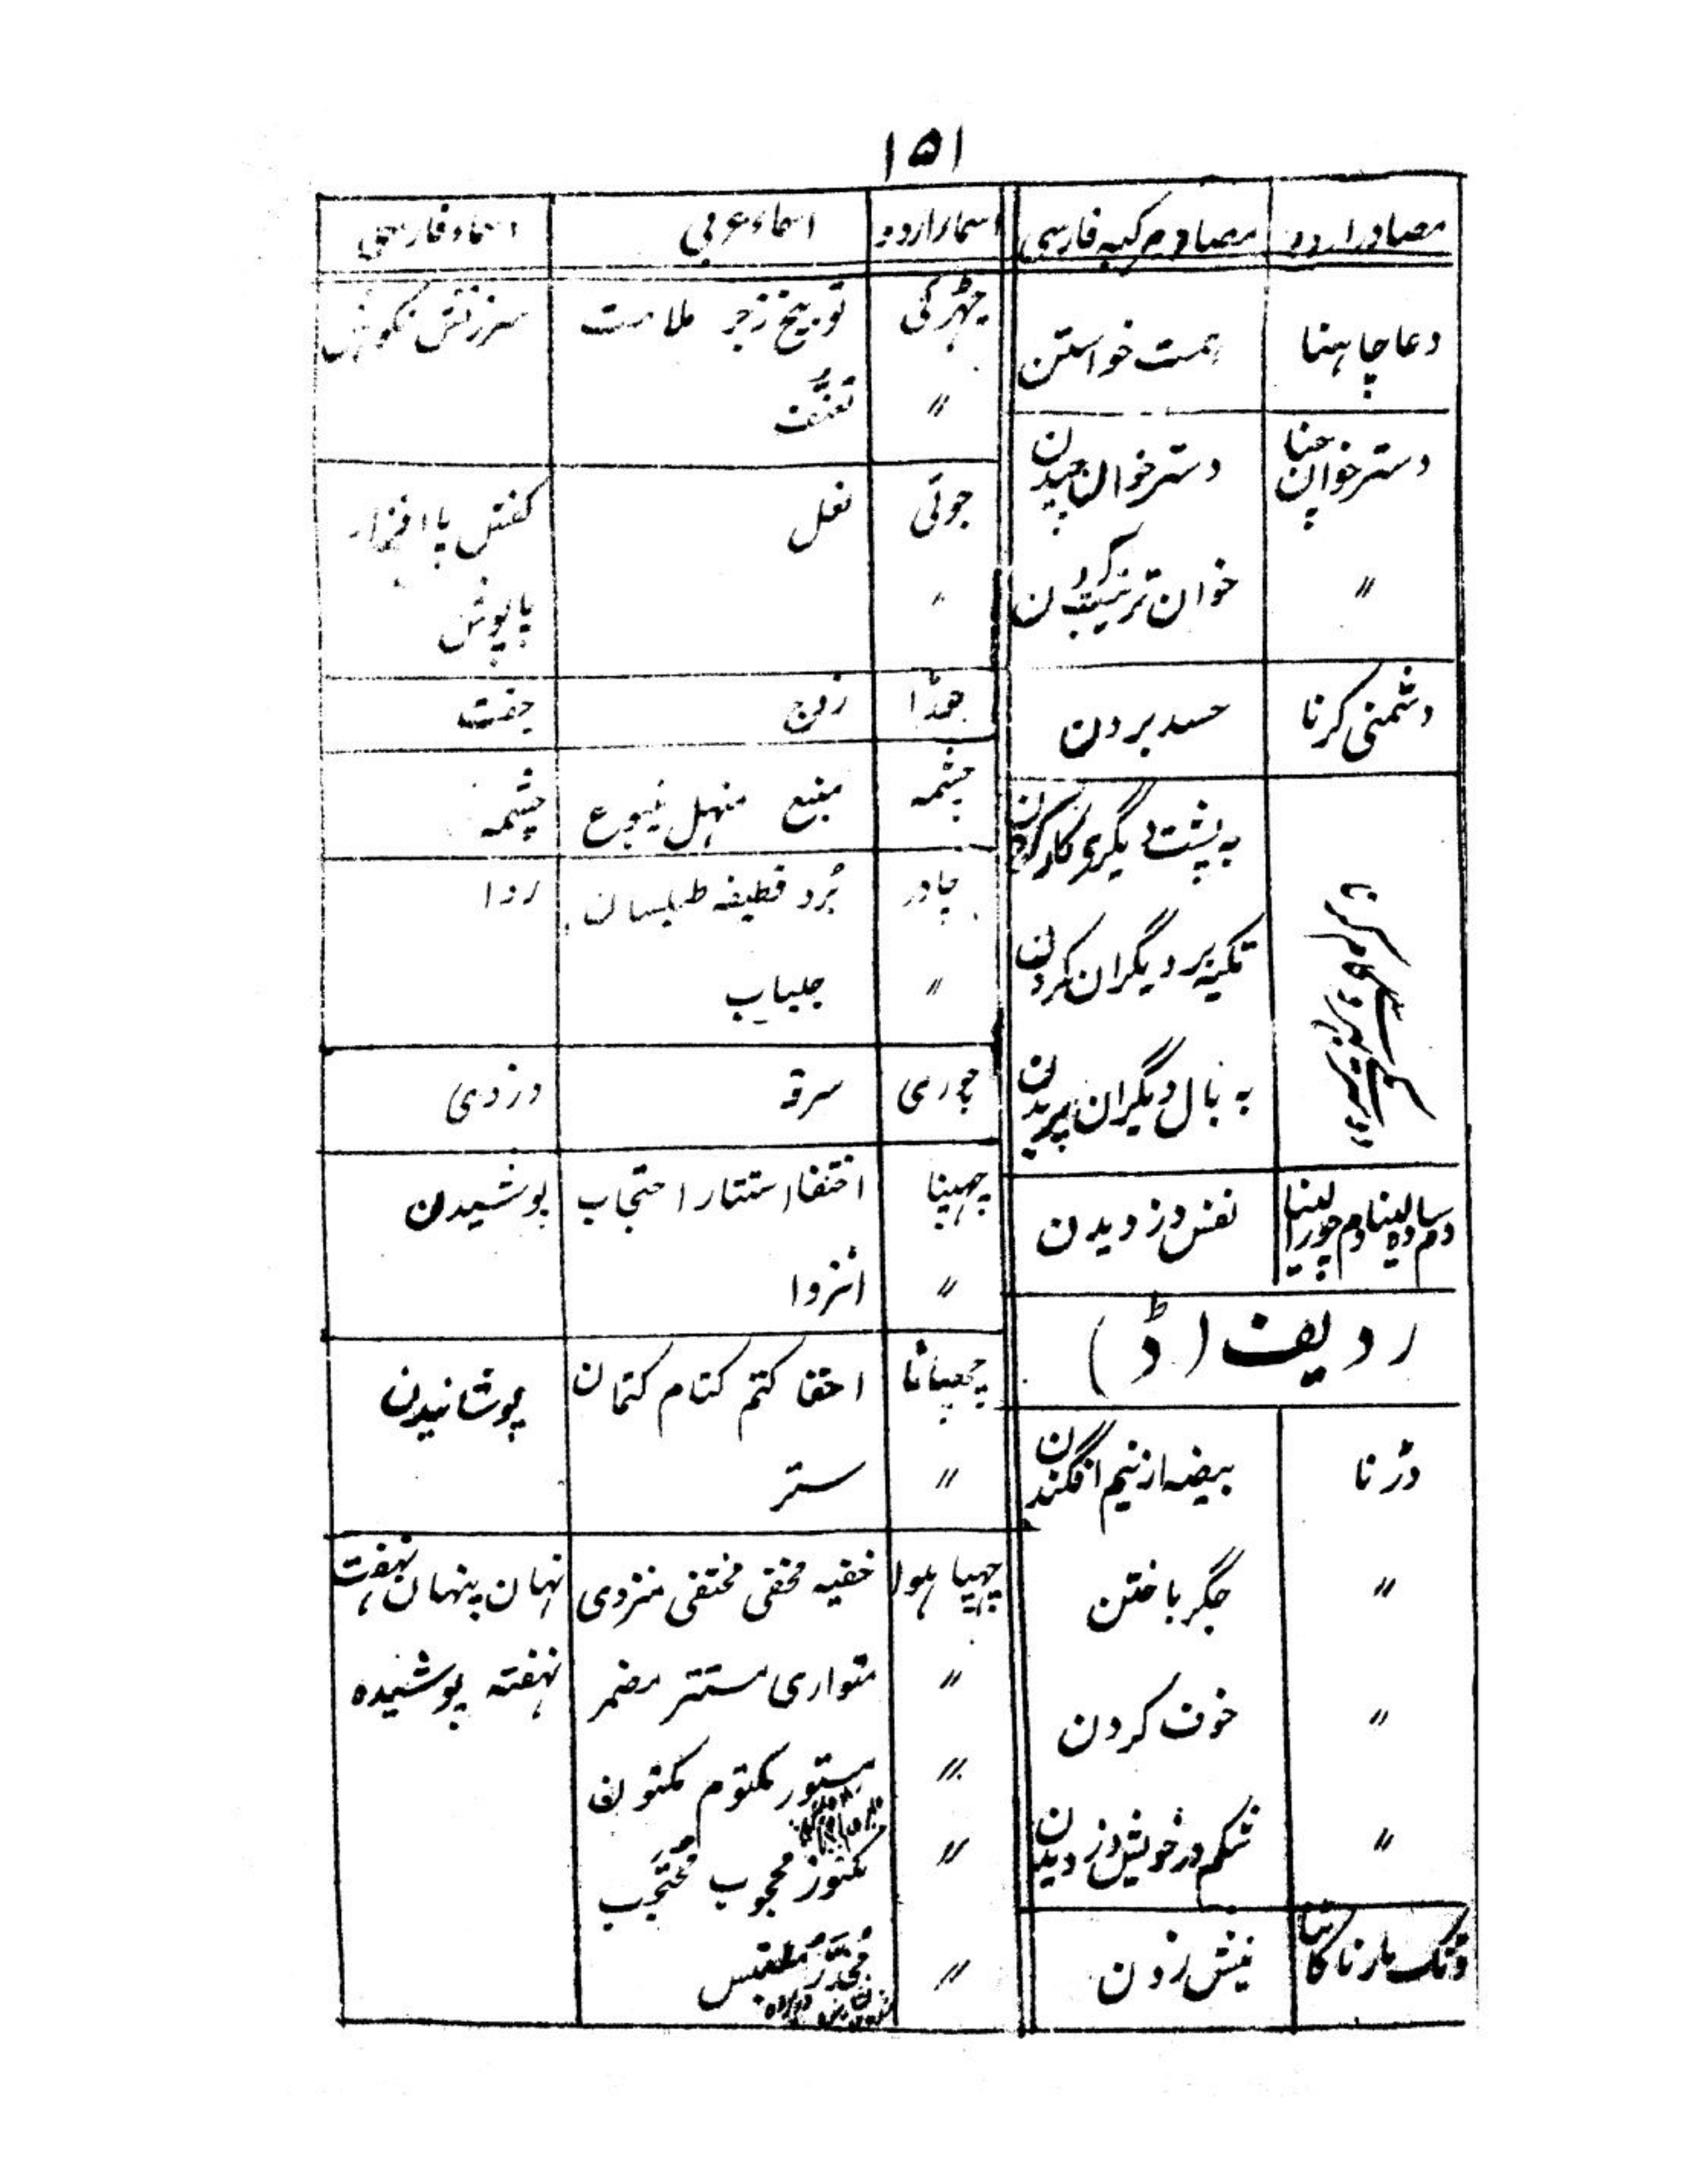 ۱۵۱
مصادر اردو مصادر مرکبہ فارسی
دعا چاہنا ہمت خواستن
دسترخوان چننا دسترخوان چیدن
〃 خوان ترتیب کردن
دشمنی کرنا حسد بردن
بہ پشت دیگری کار کردن
تکیہ بر دیگران کردن
بہ بال دیگران پریدن
دم سادہ لینا دم چورا لینا نفس دزدیدن
ردیف (ڈ)
ڈرنا بیضہ از نیم افگندن
〃 جگر باختن
〃 خوف کردن
〃 شکم در خویش دزدیدن
ڈنک مارنا کاٹنا نیش زدن
اسماء اردو اسماء عربی اسماء فارسی
جہڑکی توبیخ زجر ملامت سرزنش نکوہش
〃 تعنّف
جوتی نعل کفش پا افزار
〃 پاپوش
جوڑا زوج جفت
چشمہ منبع منہل ینبوع چشمہ
چادر بُرد قطیفہ طیلسان ردا
〃 جلباب
چوری سرقہ دزدی
چہپنا اختفا استتار احتجاب پوشیدن
〃 انزوا
چھپانا اخفا کتم کتام کتمان پوشانیدن
〃 ستر
چہپا ہوا خفیہ مخفی مختفی منزوی نہان پنہان نہفت
〃 متواری مستتر مضمر نہفتہ پوشیدہ
〃 مستور مکتوم مکنون
〃 مکنوز محجوب مُحتجَب
〃